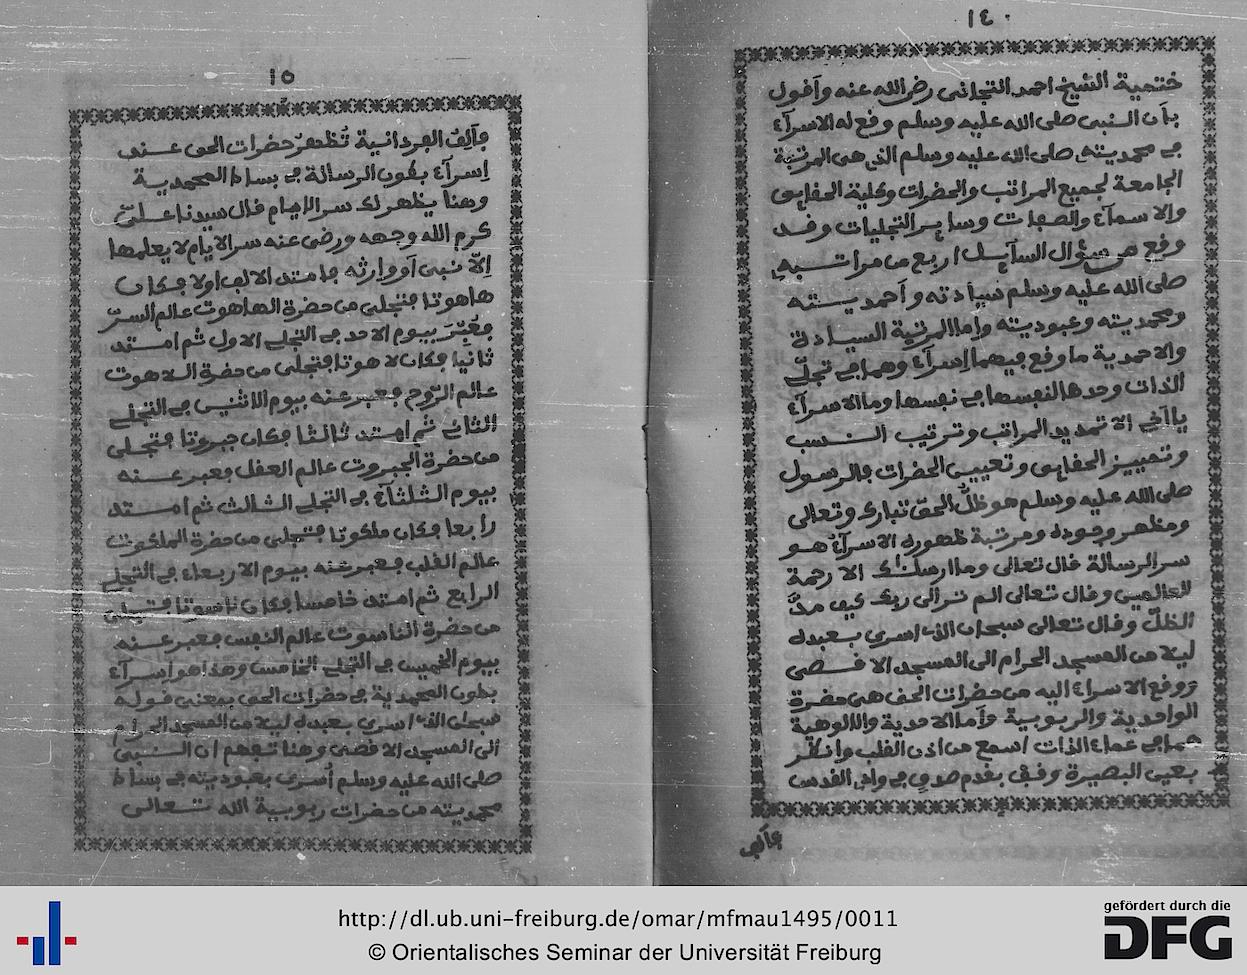 ١٤
ختمية الشيخ احمد التجانى رضى الله عنه وأفول
بأن النبى صلى الله عليه وسلم وفع له الاسرآء
في محمديته صلى الله عليه وسلم التي هى المرتبة
الجامعة لجميع المراتب والحضرات وكلية الحفايق
والاسمآء والصفات وساير التجليات وفد
وفع من سؤال السآيل اربع من مراتبه
صلى الله عليه وسلم سيادته وأحمديته
ومحمديته وعبوديته وإما المرتبة السيادة
والاحمدية ما وفع فيهما إسرآء وهما في تجلّي
الذات وحدها لنفسها في نفسها وما الاسرآء
ياأخي الا تمديد المراتب وترتيب النسب
وتمييز الحفايق وتعيين الحضرات فالرسول
صلى الله عليه وسلم هو ظلُّ الحقّ تبارك وتعالى
ومظهر وجوده ومرتبة ظهوره الاسرآء هو
سر الرسالة فال تعالى وما ارسلناك الا رحمة
للعالمين وفال تعالى الم تر الى ربك كيف مدّ
الظلّ وفال تعالى سبحان الذي اسرى بعبده
ليلا من المسجد الحرام الى المسجد الافصى
ووفع الاسراء اليه من حضرات الحق هى حضرة
الواحدية والربوبية وأما الاحدية والالوهية
هما في عماء الذات اسمع من اذن الفلب وانظر
بعين البصيرة وفف بفدم صدق في واد القدس
١٥
وألِف الفردانية تُظهرْ حضرات الحق عند
إسرآء بطون الرسالة في بساط المحمدية
وهنا يظهر لك سر الايام فال سيدنا علىّ
كرم الله وجهه ورضى عنه سر الايام لا يعلمها
إلاّ نبى أو وارثه فامتد الالف اولا فكان
هاهوتا فتجلى من حضرة الهاهوت عالم السرّ
فعُبِّرَ بيوم الاحد في التجلي الاول ثم امتد
ثانيا فكان لاهوتا فتجلى من حضرة اللاهوت
عالم الرّوح فعبر عنه بيوم الاثنين في التجلي
الثاني ثم امتد ثالثا فكان جبروتا فتجلى
من حضرة الجبروت عالم العفل فعبر عنه
بيوم الثلثآء في التجلي الثالث ثم امتد
رابعا فكان ملكوتا فتجلى من حضرة الملكوت
عالم الفلب فعبر عنه بيوم الاربعاء في التجلي
الرابع ثم امتد خامسا فكان ناسوتا فتجلى
من حضرة الناسوت عالم النفس فعبر عنه
بيوم الخميس في التجلي الخامس وهذا هو اسرآء
بطون المحمدية في حضرات الحق بمعنى فوله
سبحان الذي اسرى بعبده ليلا من المسجد الحرام
الى المسجد الافصى وهنا تفهم ان النبى
صلى الله عليه وسلم أسرى بعبوديته في بساط
محمديته من حضرات ربوبية الله تعالى
http://dl.ub.uni-freiburg.de/omar/mfmau1495/0011
© Orientalisches Seminar der Universität Freiburg
gefördert durch die
DFG